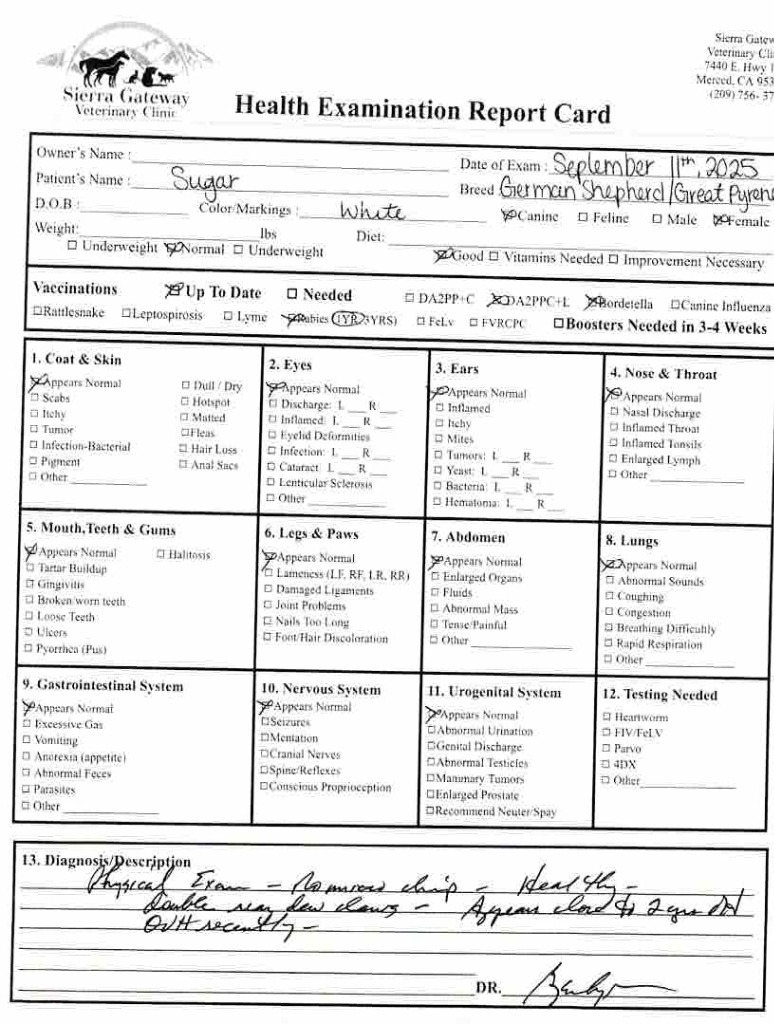 Sierra Gatew
Veterinary Cli
7440 E. Hwy 1
Merced, CA 953
(209) 756- 37
Sierra Gateway
Veterinary Clinic
Health Examination Report Card
Owner's Name :
Date of Exam : September 11th, 2025
Patient's Name : Sugar
Breed German Shepherd/Great Pyrene
D.O.B : Color/Markings : White Canine Feline Male Female
Weight: lbs Diet:
Underweight Normal Underweight
Good Vitamins Needed Improvement Necessary
Vaccinations Up To Date Needed DA2PP+C DA2PPC+L Bordetella Canine Influenza
Rattlesnake Leptospirosis Lyme Rabies (1YR/3YRS) FeLv FVRCPC Boosters Needed in 3-4 Weeks
1. Coat & Skin
Appears Normal Dull / Dry
Scabs Hotspot
Itchy Matted
Tumor Fleas
Infection-Bacterial Hair Loss
Pigment Anal Sacs
Other
2. Eyes
Appears Normal
Discharge: L R
Inflamed: L R
Eyelid Deformities
Infection: L R
Cataract L R
Lenticular Sclerosis
Other
3. Ears
Appears Normal
Inflamed
Itchy
Mites
Tumors: L R
Yeast: L R
Bacteria: L R
Hematoma: L R
4. Nose & Throat
Appears Normal
Nasal Discharge
Inflamed Throat
Inflamed Tonsils
Enlarged Lymph
Other
5. Mouth,Teeth & Gums
Appears Normal Halitosis
Tartar Buildup
Gingivitis
Broken/worn teeth
Loose Teeth
Ulcers
Pyorrhea (Pus)
6. Legs & Paws
Appears Normal
Lameness (LF, RF, LR, RR)
Damaged Ligaments
Joint Problems
Nails Too Long
Foot/Hair Discoloration
7. Abdomen
Appears Normal
Enlarged Organs
Fluids
Abnormal Mass
Tense/Painful
Other
8. Lungs
Appears Normal
Abnormal Sounds
Coughing
Congestion
Breathing Difficultly
Rapid Respiration
Other
9. Gastrointestinal System
Appears Normal
Excessive Gas
Vomiting
Anorexia (appetite)
Abnormal Feces
Parasites
Other
10. Nervous System
Appears Normal
Seizures
Mentation
Cranial Nerves
Spine/Reflexes
Conscious Proprioception
11. Urogenital System
Appears Normal
Abnormal Urination
Genital Discharge
Abnormal Testicles
Mammary Tumors
Enlarged Prostate
Recommend Neuter/Spay
12. Testing Needed
Heartworm
FIV/FeLV
Parvo
4DX
Other
13. Diagnosis/Description
Physical Exam - No micro chip - Healthy -
Double rear dew claws - Appears close to 2 yrs old
OVH recently -
DR.